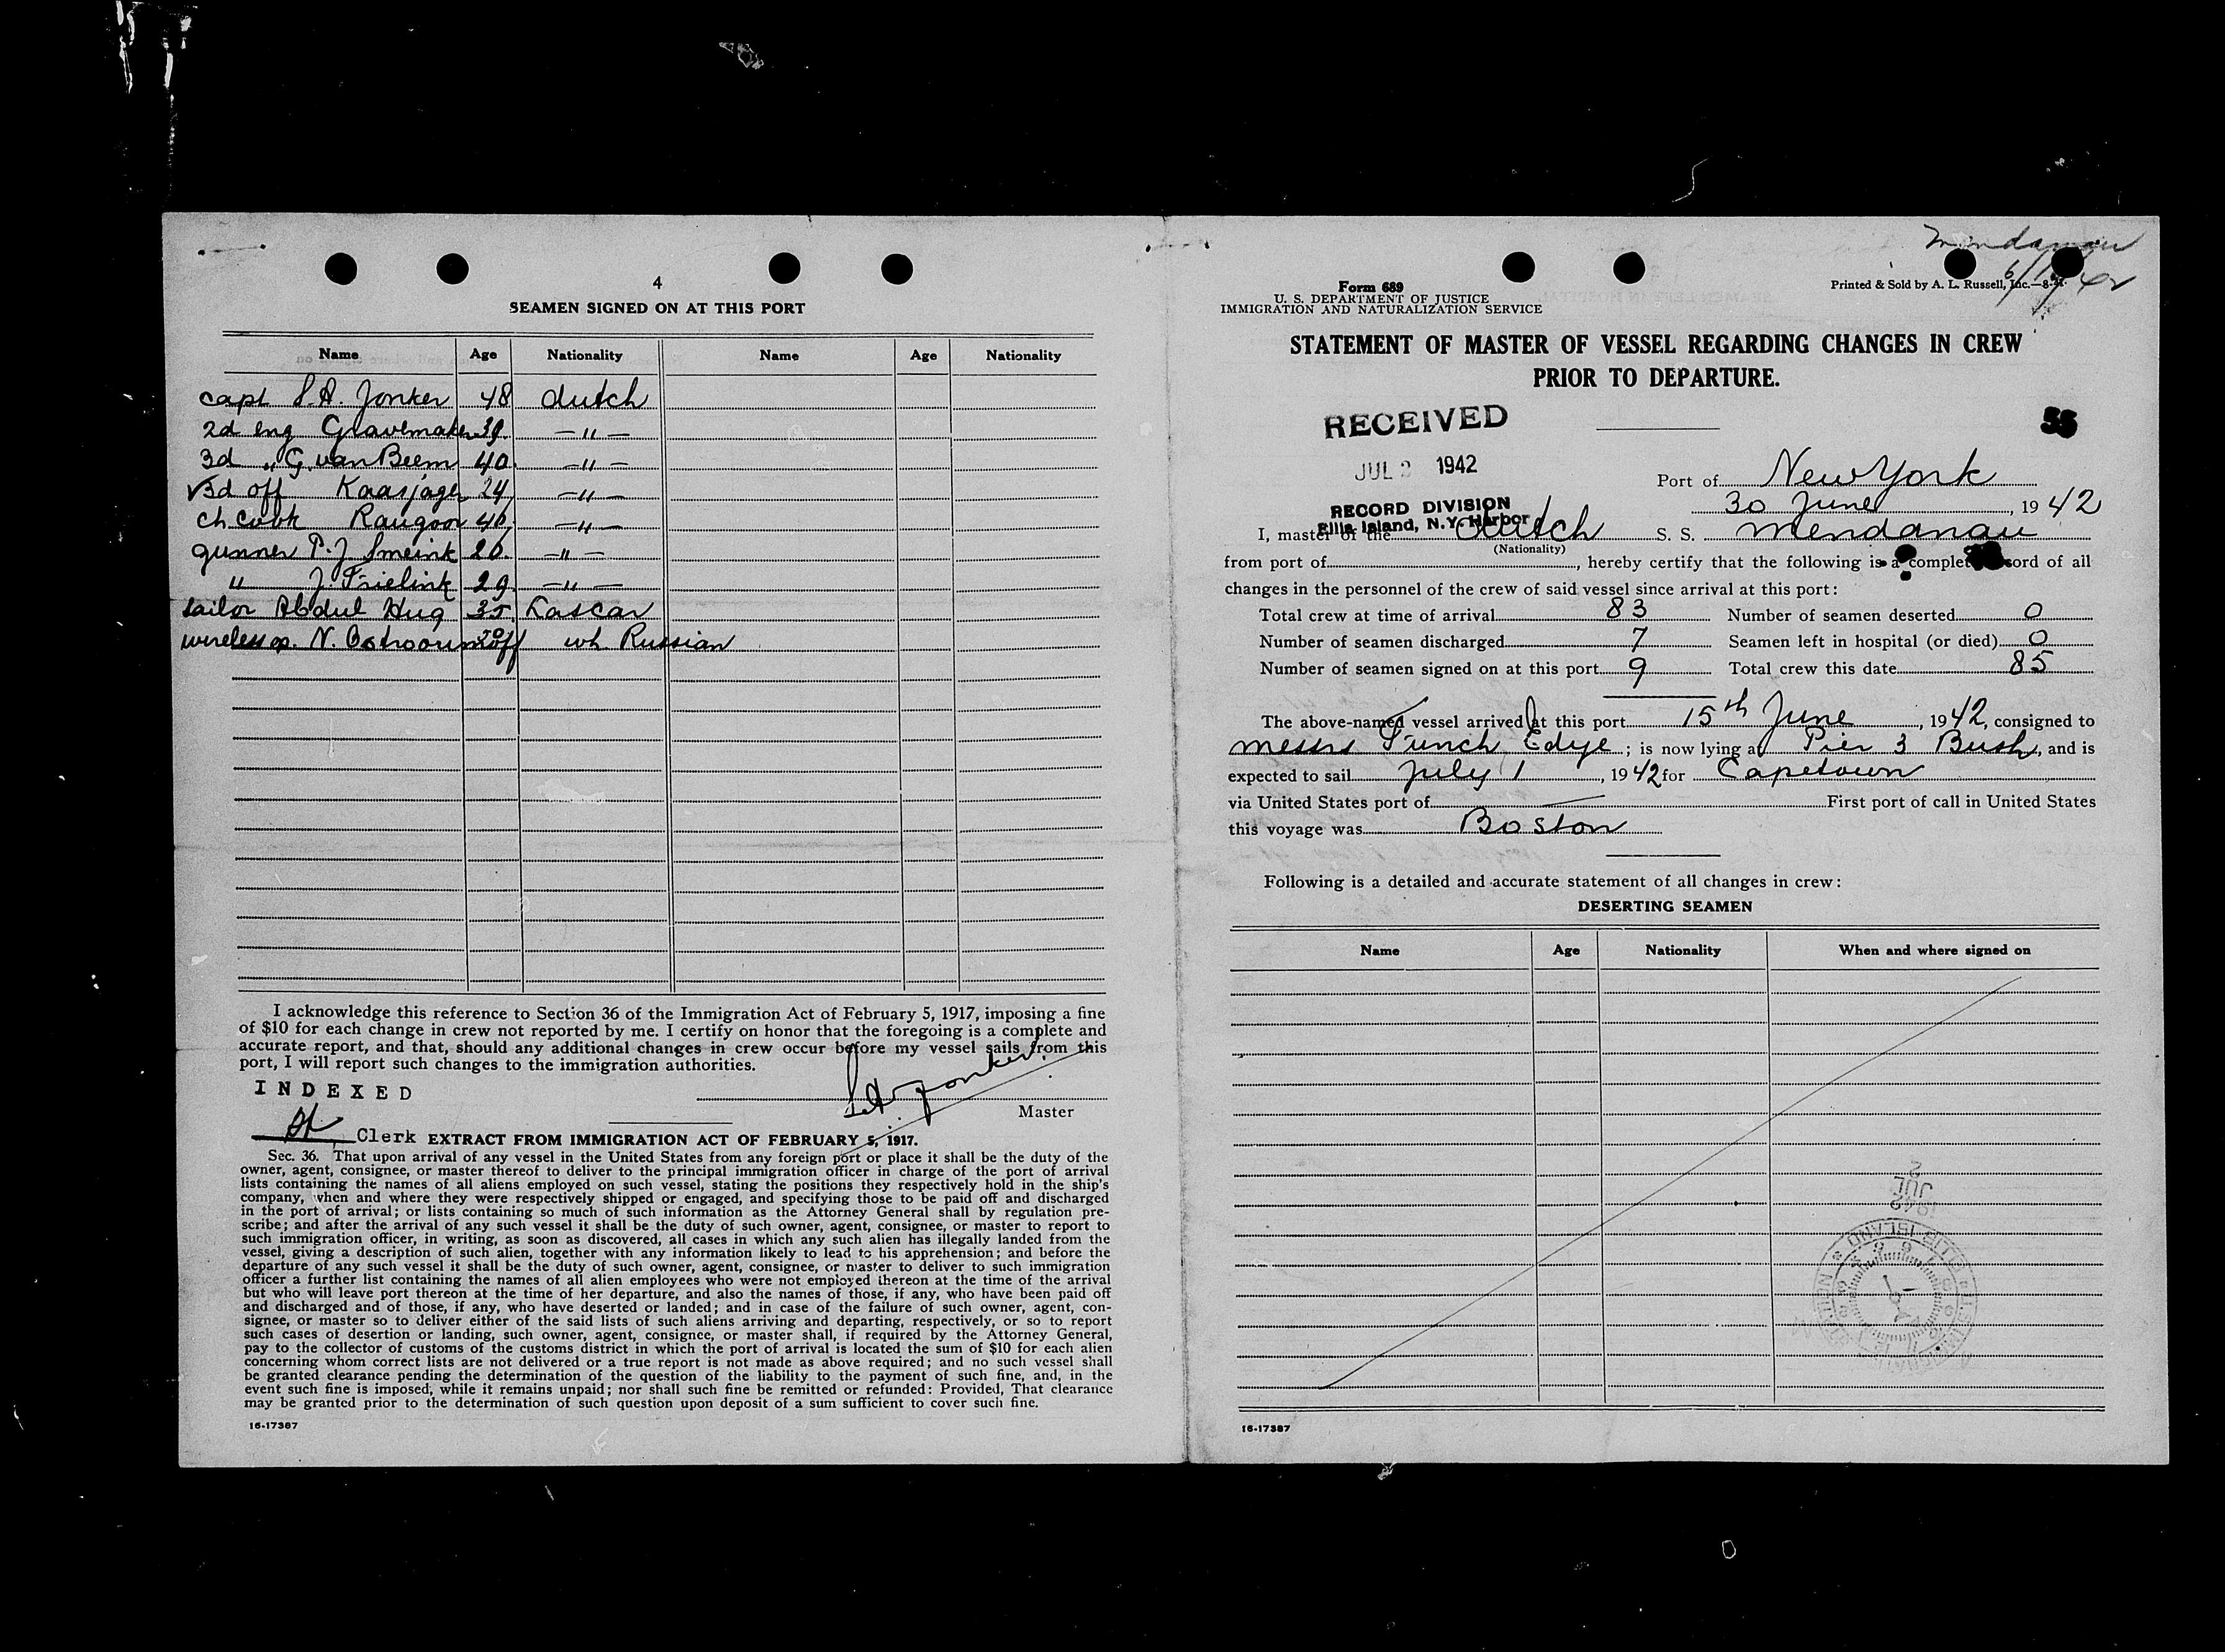 4
SEAMEN SIGNED ON AT THIS PORT
Name Age Nationality Name Age Nationality
capt S.A. Jonker 48 dutch
2d eng Gravemaker 39. —"—
3d " G. van Beem 40. —"—
3d off Kaasjager 24 —"—
ch cook Rangoon 40 —"—
gunner P.J. Smeink 26. —"—
" J. Frielink 29. —"—
sailor Abdul Huq 35. Lascar
wireless op. N. off wh. Russian
I acknowledge this reference to Section 36 of the Immigration Act of February 5, 1917, imposing a fine
of $10 for each change in crew not reported by me. I certify on honor that the foregoing is a complete and
accurate report, and that, should any additional changes in crew occur before my vessel sails from this
port, I will report such changes to the immigration authorities.
INDEXED
S.A. Jonker.
Master
Clerk EXTRACT FROM IMMIGRATION ACT OF FEBRUARY 5, 1917.
Sec. 36. That upon arrival of any vessel in the United States from any foreign port or place it shall be the duty of the
owner, agent, consignee, or master thereof to deliver to the principal immigration officer in charge of the port of arrival
lists containing the names of all aliens employed on such vessel, stating the positions they respectively hold in the ship's
company, when and where they were respectively shipped or engaged, and specifying those to be paid off and discharged
in the port of arrival; or lists containing so much of such information as the Attorney General shall by regulation pre-
scribe; and after the arrival of any such vessel it shall be the duty of such owner, agent, consignee, or master to report to
such immigration officer, in writing, as soon as discovered, all cases in which any such alien has illegally landed from the
vessel, giving a description of such alien, together with any information likely to lead to his apprehension; and before the
departure of any such vessel it shall be the duty of such owner, agent, consignee, or master to deliver to such immigration
officer a further list containing the names of all alien employees who were not employed thereon at the time of the arrival
but who will leave port thereon at the time of her departure, and also the names of those, if any, who have been paid off
and discharged and of those, if any, who have deserted or landed; and in case of the failure of such owner, agent, con-
signee, or master so to deliver either of the said lists of such aliens arriving and departing, respectively, or so to report
such cases of desertion or landing, such owner, agent, consignee, or master shall, if required by the Attorney General,
pay to the collector of customs of the customs district in which the port of arrival is located the sum of $10 for each alien
concerning whom correct lists are not delivered or a true report is not made as above required; and no such vessel shall
be granted clearance pending the determination of the question of the liability to the payment of such fine, and, in the
event such fine is imposed, while it remains unpaid; nor shall such fine be remitted or refunded: Provided, That clearance
may be granted prior to the determination of such question upon deposit of a sum sufficient to cover such fine.
16-17387
Mendanau
Form 689
U. S. DEPARTMENT OF JUSTICE
IMMIGRATION AND NATURALIZATION SERVICE
Printed & Sold by A. L. Russell, Inc.
STATEMENT OF MASTER OF VESSEL REGARDING CHANGES IN CREW
PRIOR TO DEPARTURE.
RECEIVED
JUL 2 1942
RECORD DIVISION
Ellis Island, N.Y. Harbor
Port of New York
30 June, 1942
I, master of the dutch S. S. Mendanau
(Nationality)
from port of , hereby certify that the following is a complete record of all
changes in the personnel of the crew of said vessel since arrival at this port:
Total crew at time of arrival 83 Number of seamen deserted 0
Number of seamen discharged 7 Seamen left in hospital (or died) 0
Number of seamen signed on at this port 9 Total crew this date 85
The above-named vessel arrived at this port 15th June, 1942, consigned to
Messrs Funch Edye; is now lying at Pier 3 Bush, and is
expected to sail July 1, 1942 for Capetown
via United States port of — First port of call in United States
this voyage was Boston
Following is a detailed and accurate statement of all changes in crew:
DESERTING SEAMEN
Name Age Nationality When and where signed on
1942
JUL
2
16-17387